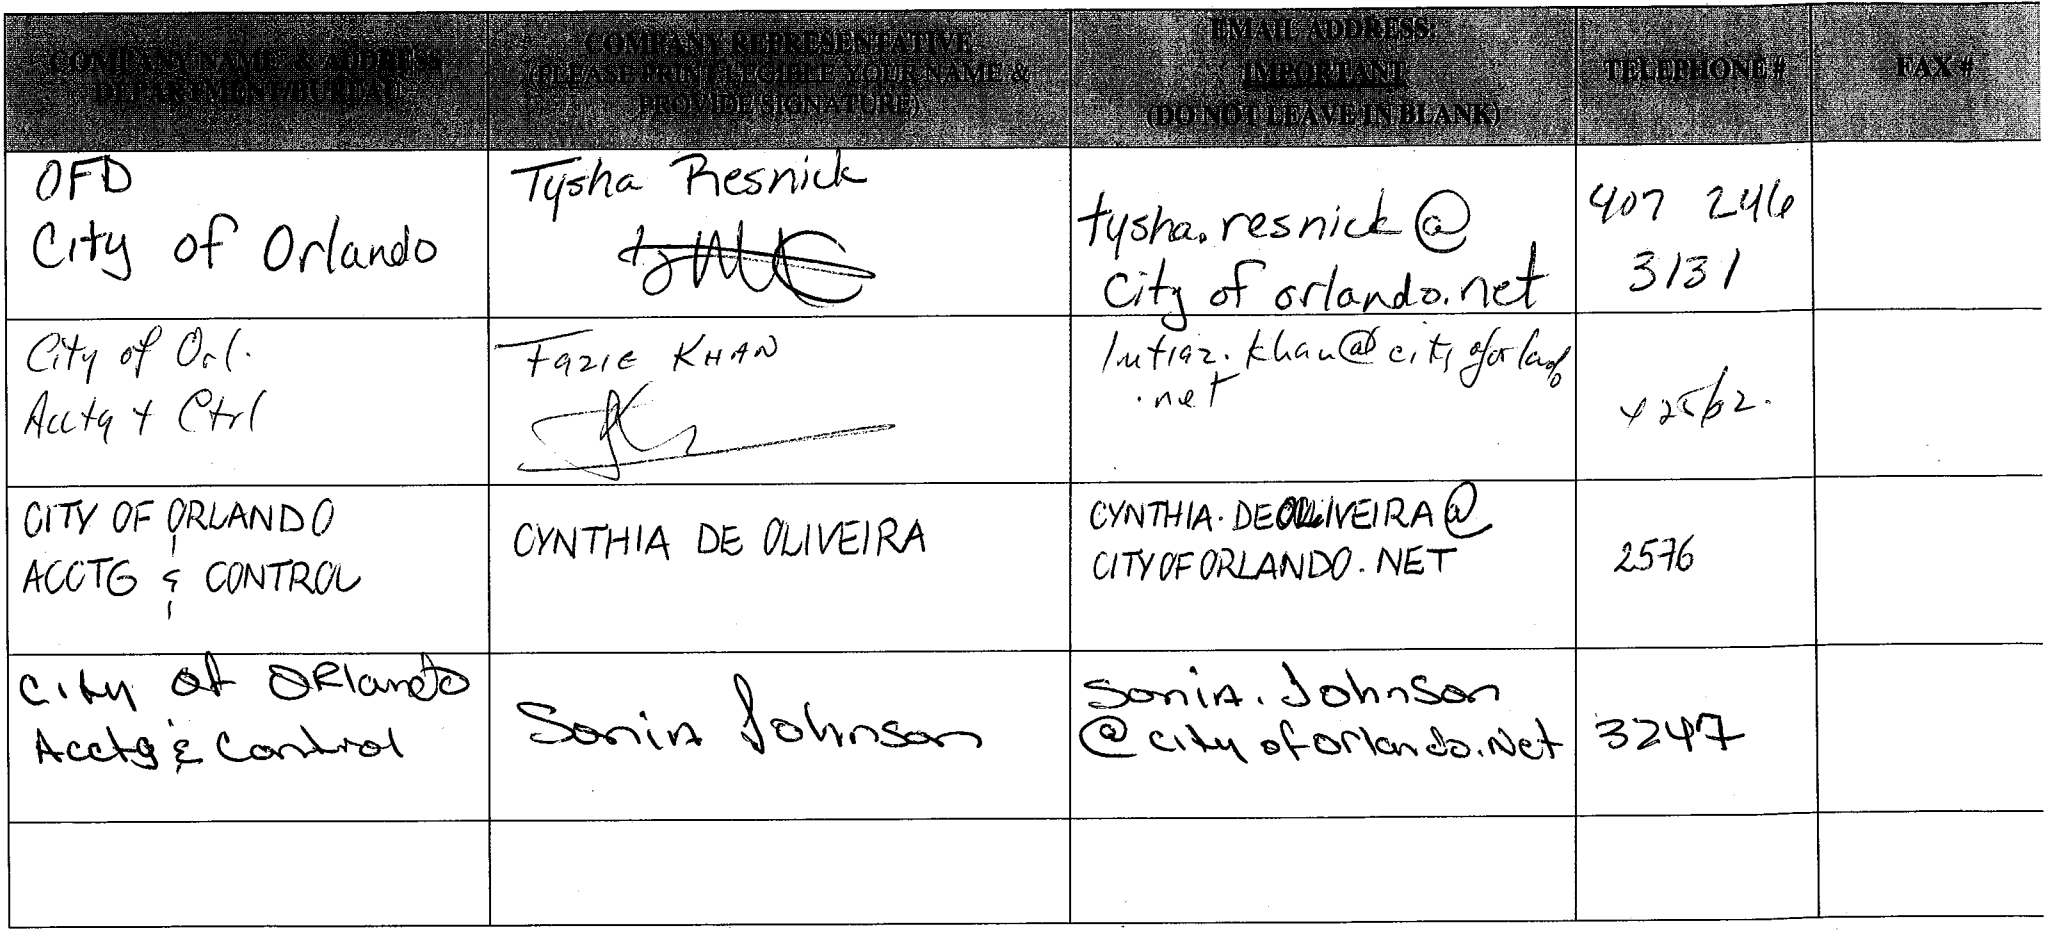 COMPANY NAME & ADDRESS
DEPARTMENT/BUREAU
COMPANY REPRESENTATIVE
(PLEASE PRINT LEGIBLE YOUR NAME &
PROVIDE SIGNATURE)
EMAIL ADDRESS:
IMPORTANT
(DO NOT LEAVE IN BLANK)
TELEPHONE #
FAX #
OFD
City of Orlando
Tysha Resnick
tysha.resnick@
city of orlando.net
407 246
3131
City of Orl.
Acctg + Ctrl
Fazie KHAN
Imtiaz.khan@cityoforlando
.net
CITY OF ORLANDO
ACCTG & CONTROL
CYNTHIA DE OLIVEIRA
CYNTHIA.DEOLIVEIRA@
CITYOFORLANDO.NET
2576
City of ORlando
Acctg & Control
Sonia Johnson
Sonia.Johnson
@cityoforlando.Net
3247